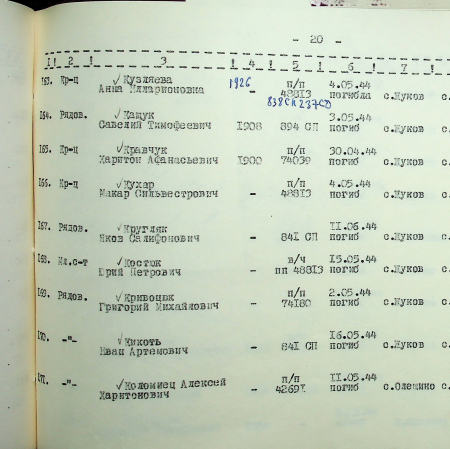 - 20 -
1! 2 ! 3 ! 4 ! 5 ! 6 ! 7 !
163. Кр-ц Кузляева 1926 п/п 4.05.44
Анна Илларионовна 48813 погибла с.Жуков с.
838 СП 237 СД
164. Рядов. Кащук 3.05.44
Савелий Тимофеевич 1908 894 СП погиб с.Жуков с.
165. Кр-ц Кравчук п/п 30.04.44
Харитон Афанасьевич 1900 74039 погиб с.Жуков с.
166. Кр-ц Кухар п/п 4.05.44
Макар Сильвестрович - 48813 погиб с.Жуков с.
167. Рядов. Кругляк 11.06.44
Яков Салифонович - 841 СП погиб с.Жуков с.
168. Мл.с-т Костюк в/ч 15.05.44
Юрий Петрович - пп 48813 погиб с.Жуков с.
169. Рядов. Кривоцюк п/п 2.05.44
Григорий Михайлович - 74180 погиб с.Жуков с.
170. -"- Кикоть 16.05.44
Иван Артемович - 841 СП погиб с.Жуков с.
171. -"- Коломиец Алексей п/п 11.05.44
Харитонович - 42691 погиб с.Олешино с.